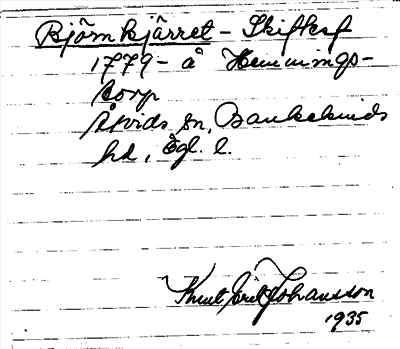 Björnkjärret - Skifteсf
1779 - å Hemmings-
torp
Åtvids sn, Bankekinds
hd, Ögl. l.
Knut Erik Johansson
1935